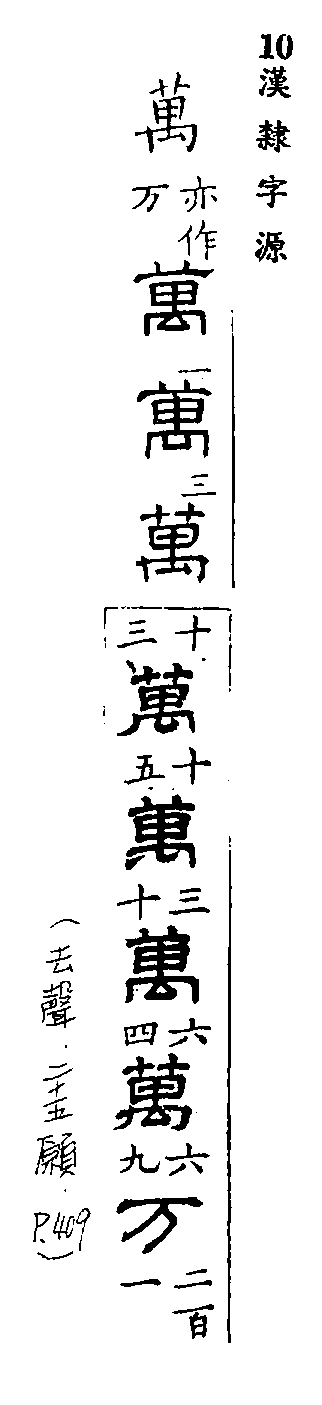 10漢隸字源
萬亦作万萬一萬三萬十三萬十五萬三十萬六四萬六九万二百一
(去聲.二十五願.P.409)